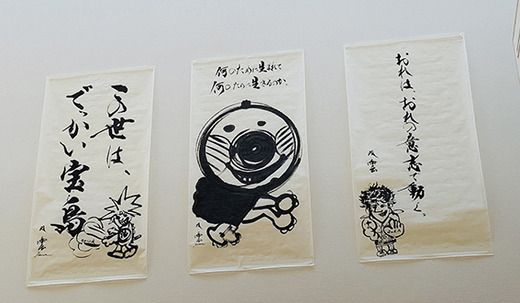 この世は、
でっかい宝島
何のために生まれて
何のために生きるのか。
おれは、おれの意志で動く。